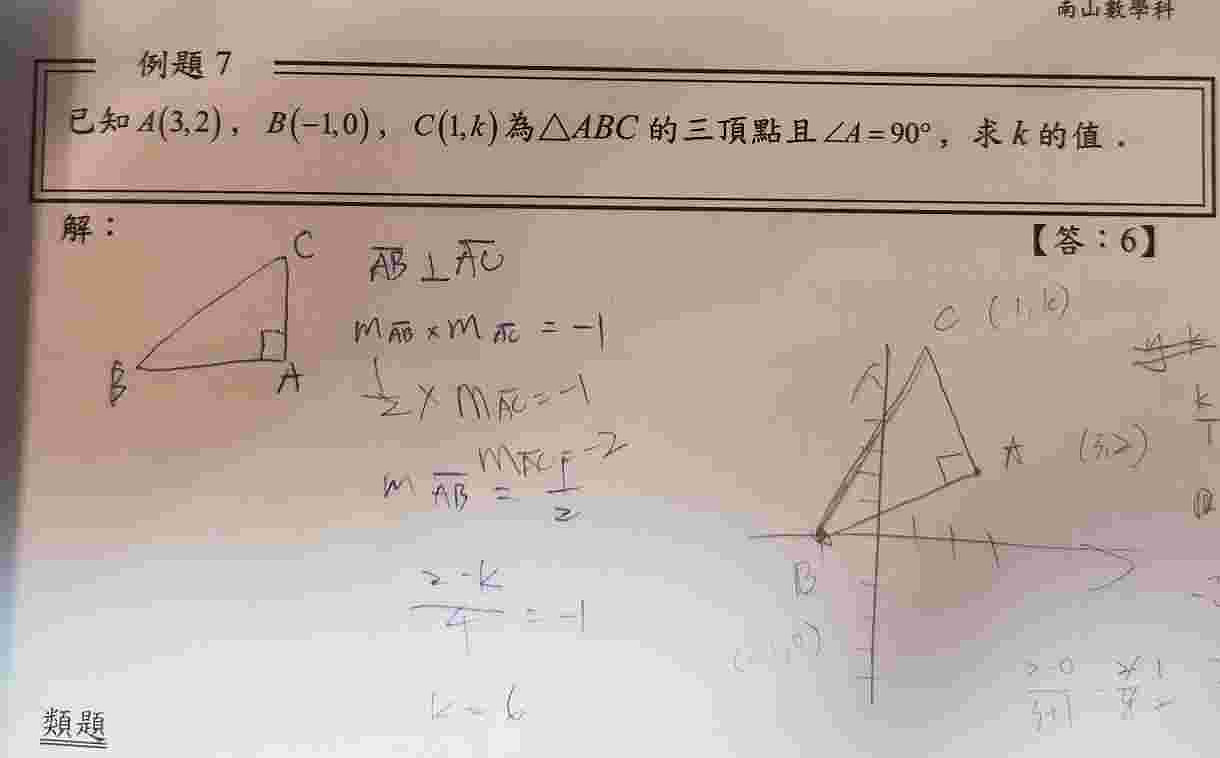 南山數學科
例題 7
已知 A(3,2), B(−1,0), C(1,k) 為△ABC 的三頂點且 ∠A=90°, 求 k 的值.
解:
【答:6】
C
B
A
AB ⊥ AC
m AB × m AC = −1
1/2 × m AC = −1
m AC = −2
m AB = 1/2
2−k/4 = −1
k = 6
C (1,k)
A (3,2)
B
(−1,0)
2−0/3+1 2/4 1/2
類題